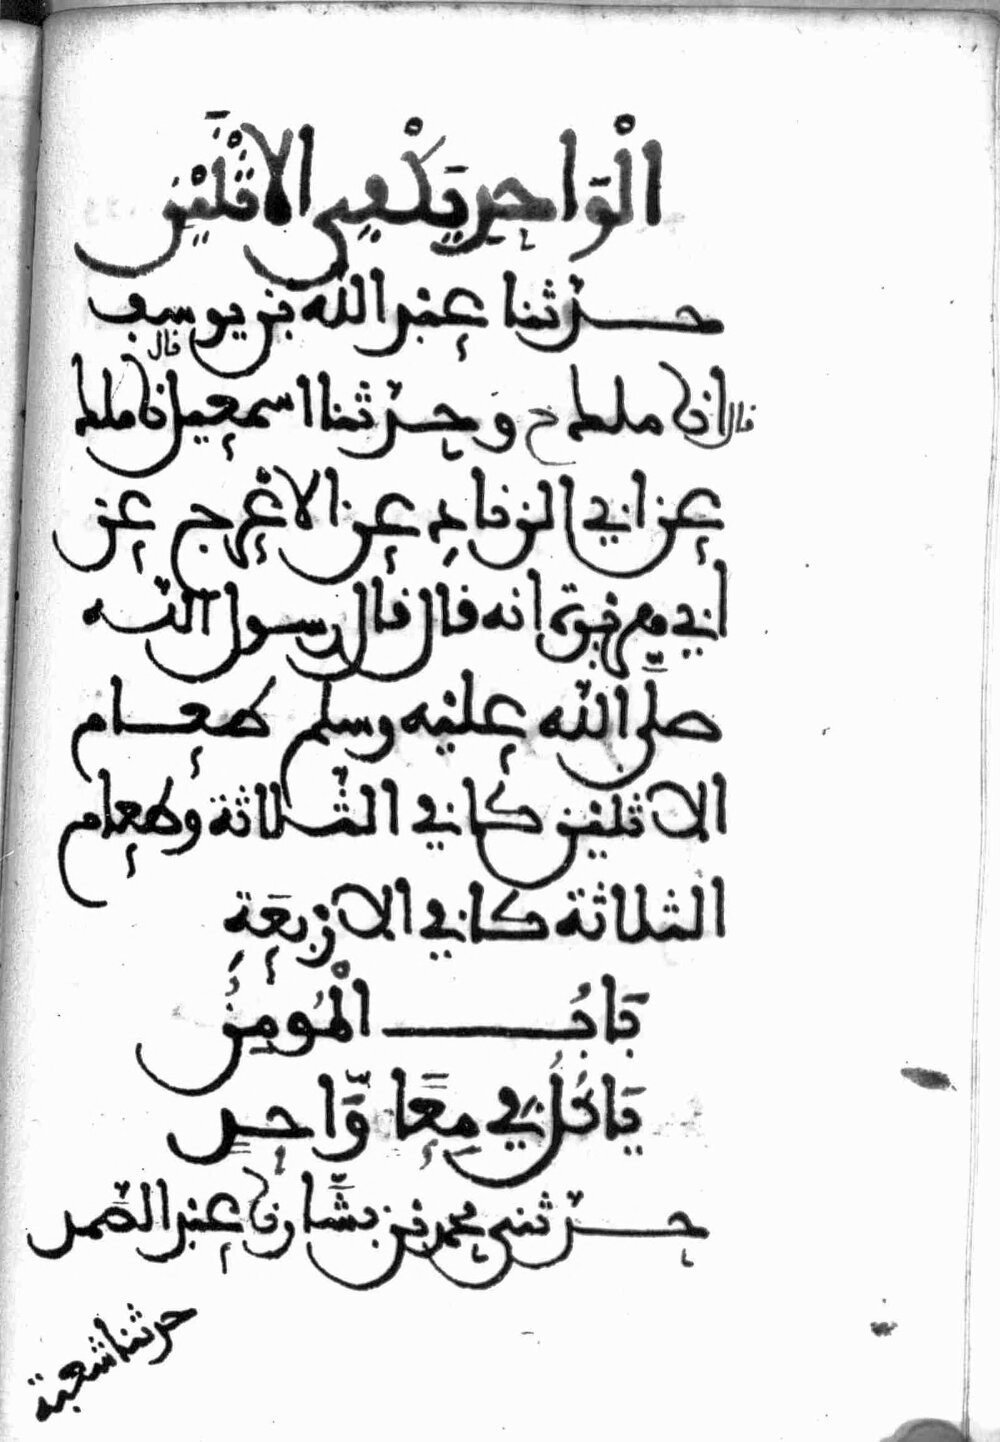 الْوَاحِدِ يَكْفِي الِاثْنَيْنِ
حدثنا عبد الله بن يوسف
قال انا ملك ح وحدثنا اسمعيل قال نا ملك
عن ابي الزناد عن الاعرج عن
ابي هريرة انه قال قال رسول الله
صلى الله عليه وسلم طعام
الاثنين كافي الثلاثة وطعام
الثلاثة كافي الاربعة
بَابُ الْمُومِنُ
يَاكُلُ فِي مِعًا وَّاحِدٍ
حدثني محمد بن بشار نا عبد الصمد
حدثنا شعبة